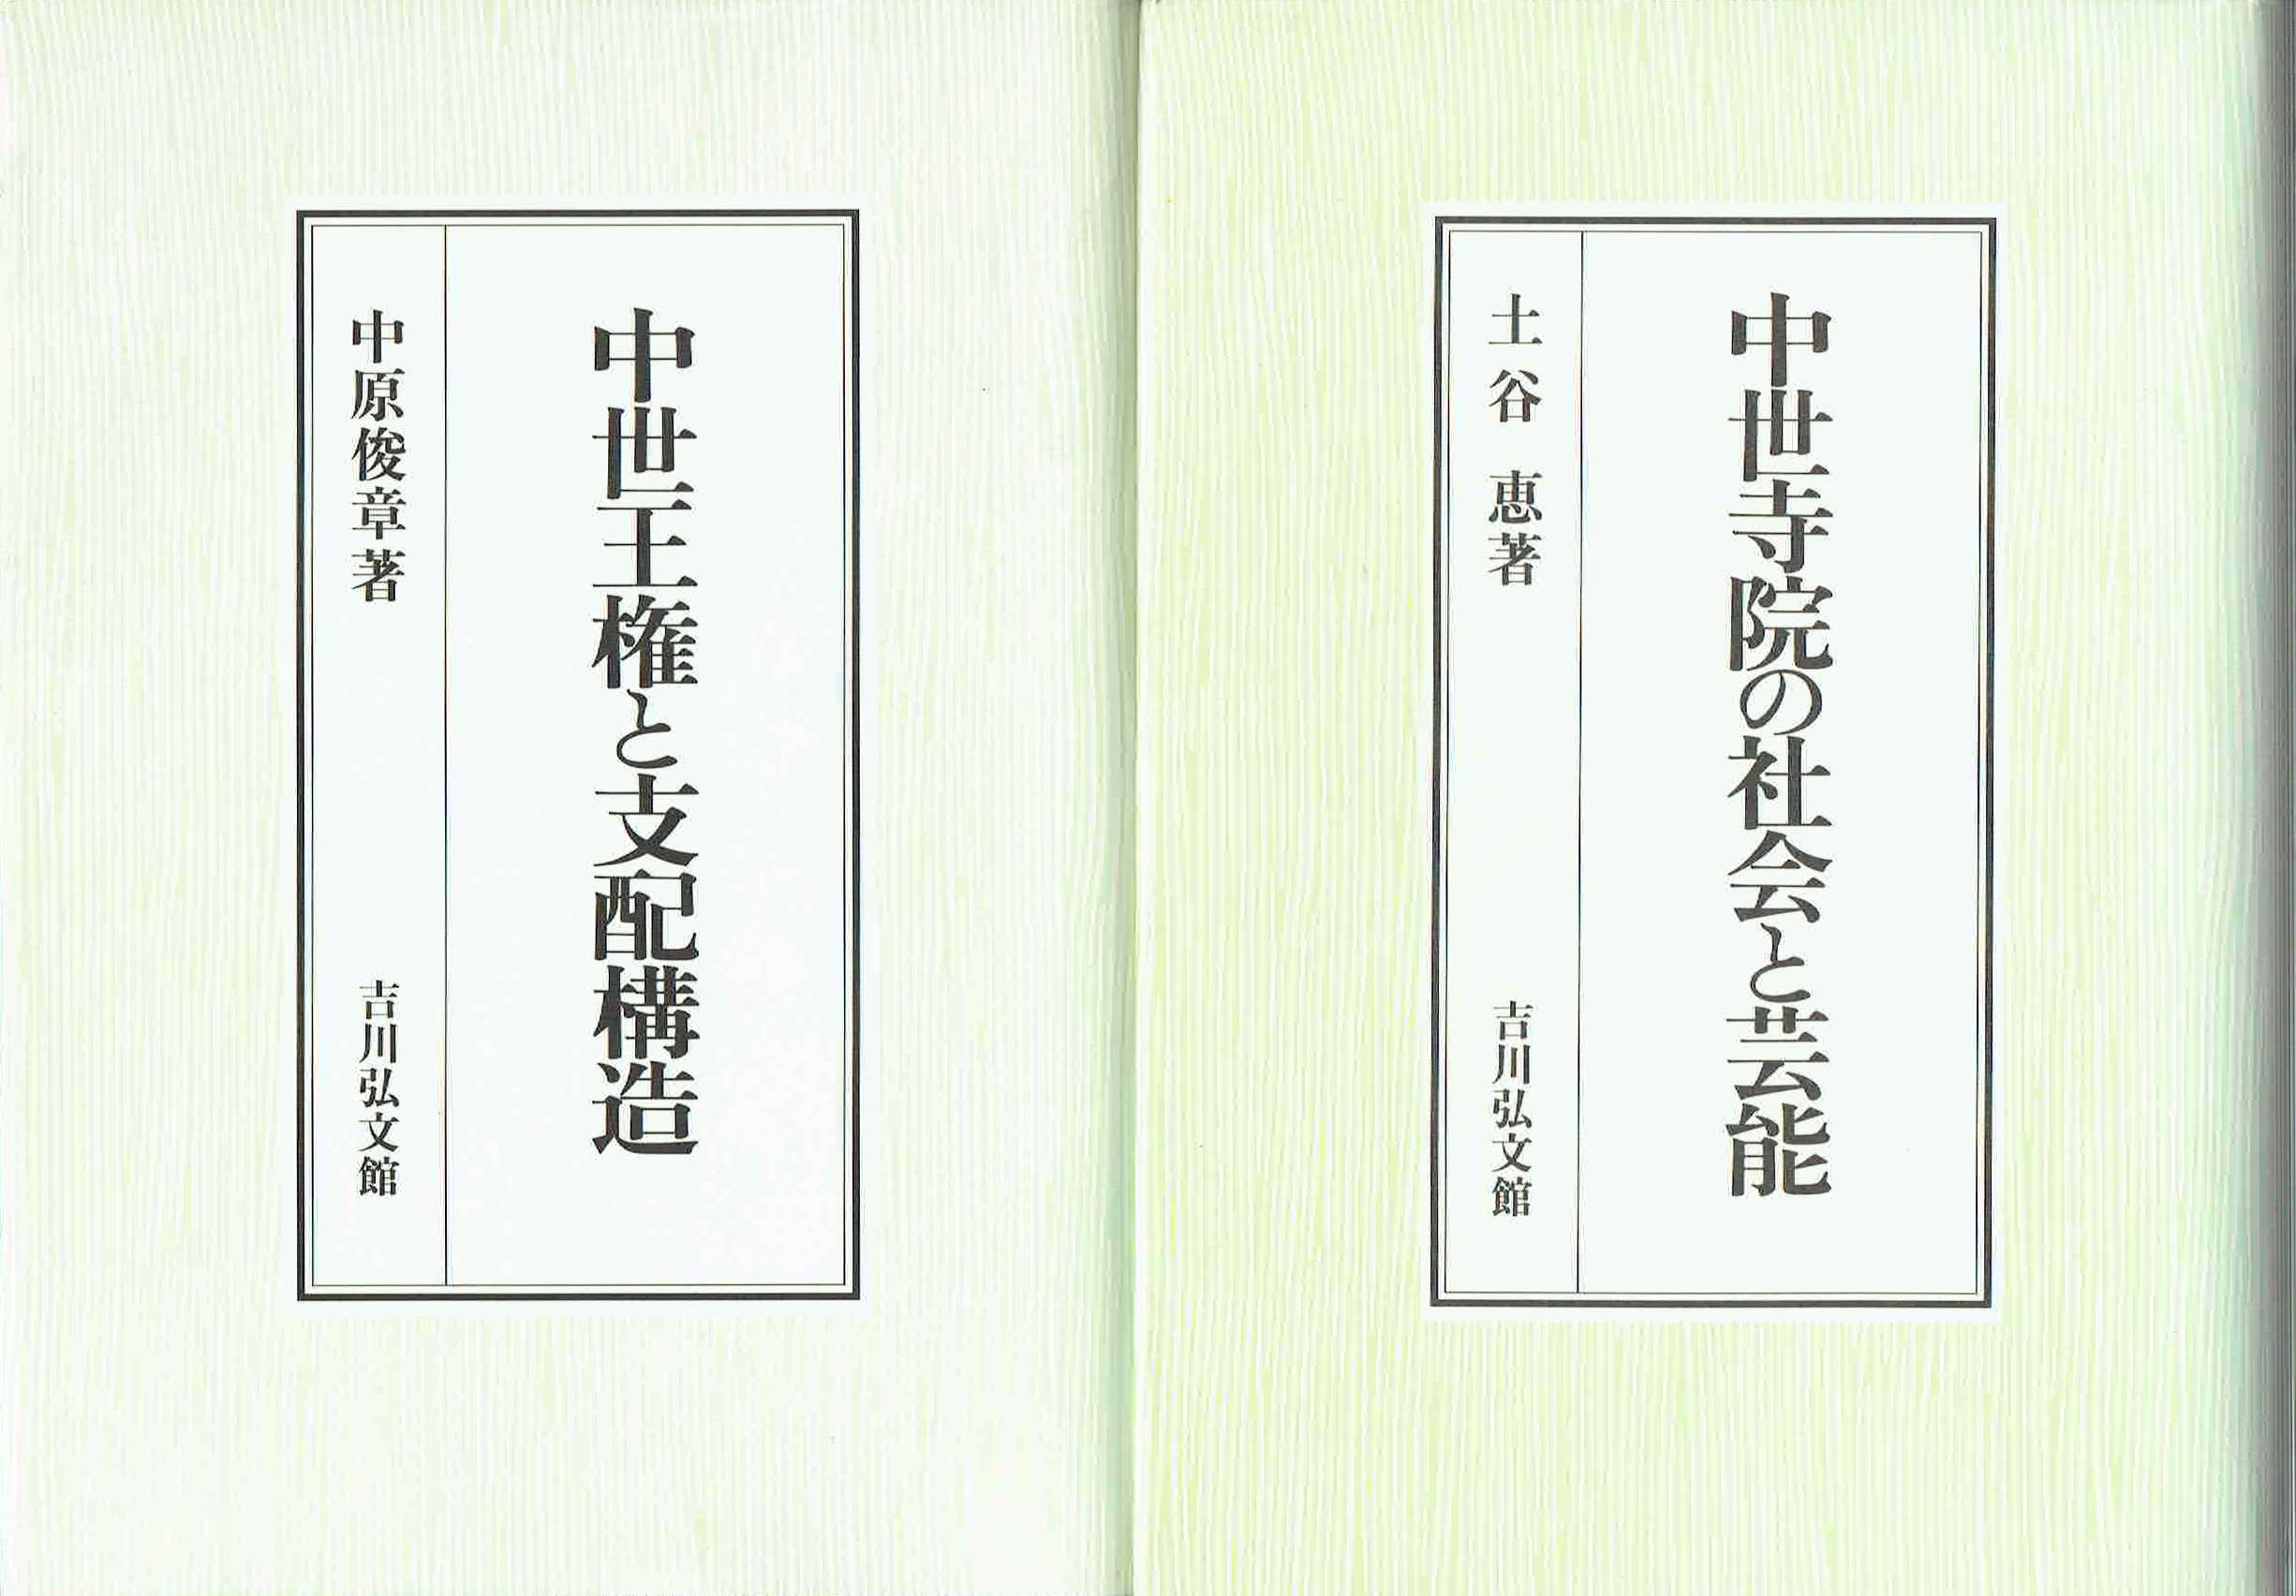 中世寺院の社会と芸能
土谷 恵著
吉川弘文館
中世王権と支配構造
中原俊章著
吉川弘文館